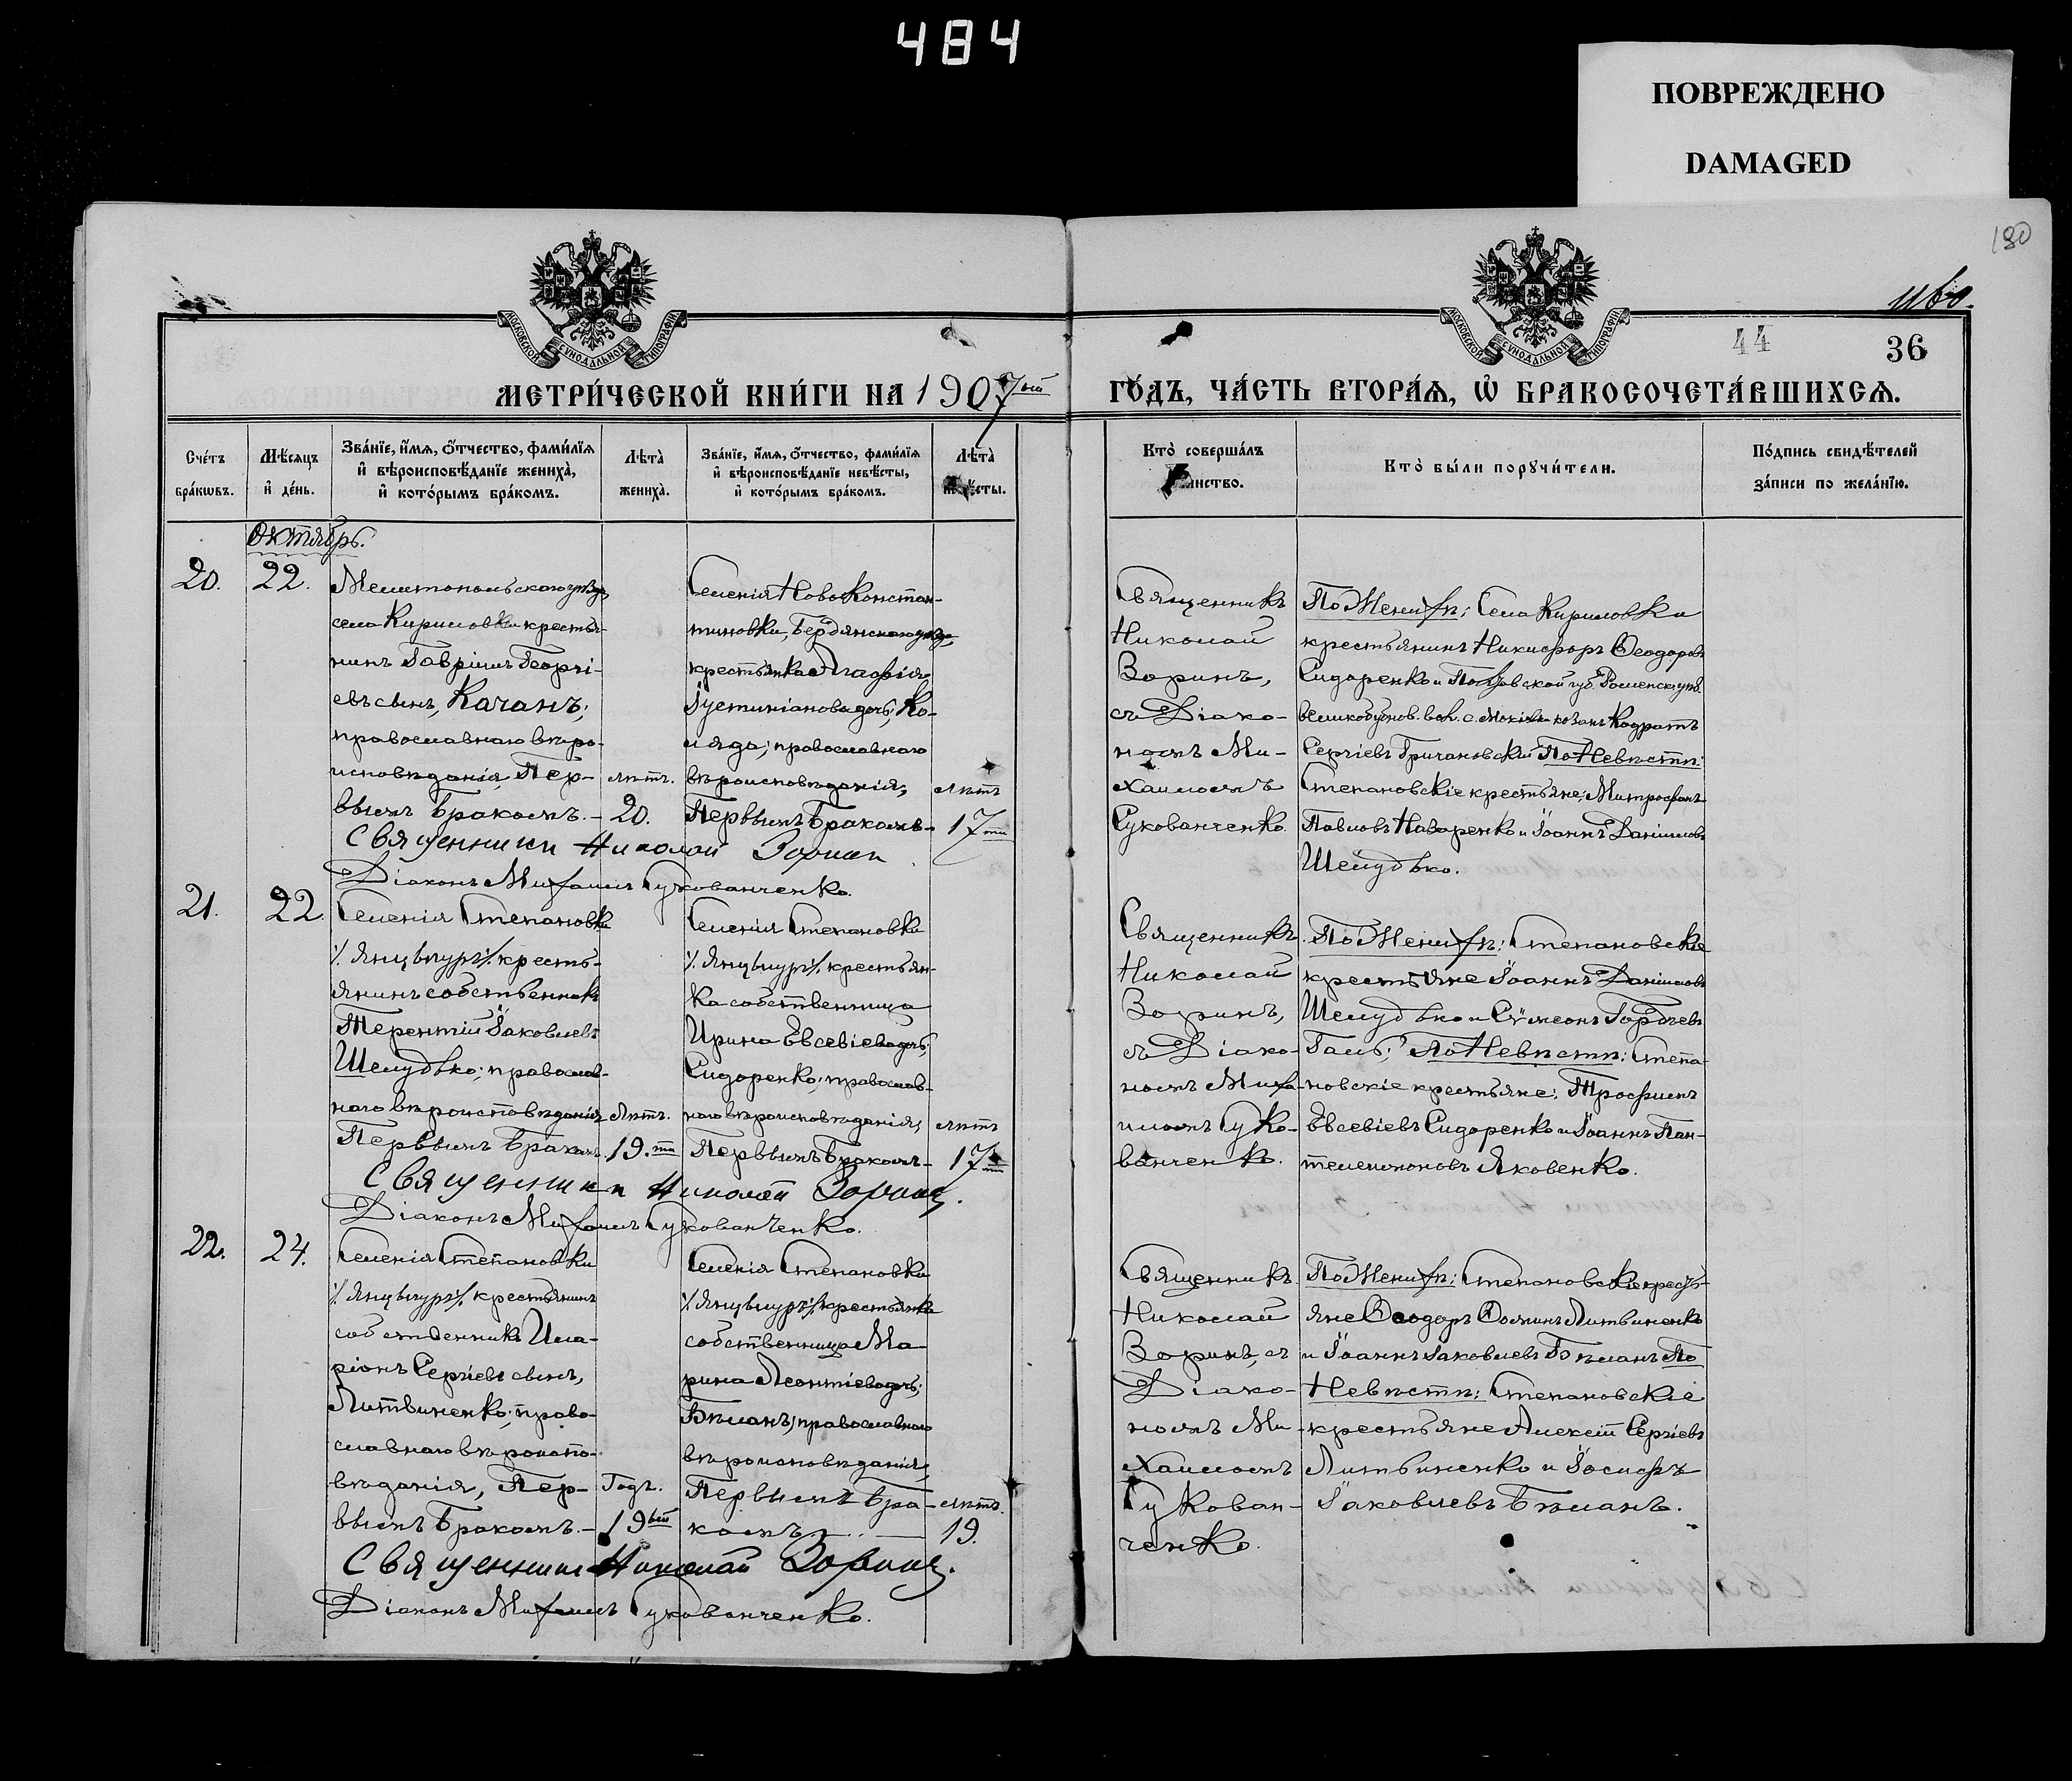 484
ПОВРЕЖДЕНО
DAMAGED
180
44
36
МОСКОВСКОЙ СѴНОДАЛЬНОЙ ТИПОГРАФІИ
МОСКОВСКОЙ СѴНОДАЛЬНОЙ ТИПОГРАФІИ
МЕТРИ́ЧЕСКОЙ КНИ́ГИ НА 1907ый
ГО́ДЪ, ЧА́СТЬ ВТОРА́Ѧ, Ѡ҆ БРАКОСОЧЕТА́ВШИХСѦ.
Сче́тъ
бра́кѡвъ.
Мѣ́сяцъ
и҆ де́нь.
Зва́нїе, и҆́мя, ѻ҆́тчество, фами́лїя
и҆ вѣроисповѣ́данїе жениха̀,
и҆ кото́рымъ бра́комъ.
Лѣ́та̀
жениха̀.
Зва́нїе, и҆́мя, ѻ҆́тчество, фами́лїя
и҆ вѣроисповѣ́данїе невѣ́сты,
и҆ кото́рымъ бра́комъ.
Лѣ́та̀
невѣ́сты.
Кто̀ соверша́лъ
таинство.
Кто̀ бы́ли порꙋчи́тели.
По́дпись свидѣ́телей
за́писи по жела́нїю.
Октябрь.
20.
22.
Мелитопольскаго уѣзд.
села Кириловки крестья-
нинъ Гавріилъ Георгі-
евъ сынъ, Качанъ;
православнаго вѣро-
исповѣданія, Пер-
вымъ бракомъ.-
лѣтъ.
20.
Селенія НовоКонстан-
тиновки, Бердянскаго уѣзда,
крестьянка Агафія
Іустиніанова дочь, Ко-
ляда; православнаго
вѣроисповѣданія,
Первымъ бракомъ-
лѣтъ
17ти
Священникъ
Николай
Зоринъ,
съ Діако-
номъ Ми-
хаиломъ
Сукованченко.
По Женихѣ: Села Кириловки
крестьянинъ Никифоръ Ѳеодоровъ
Сидоренко и Полтовской губ. Роменск. уѣз.
великобубнов. вол. с. козакъ Кодратъ
Сергіевъ Гричановскій По Невѣстѣ:
Степановскіе крестьяне: Митрофанъ
Павловъ Назаренко и Іоаннъ Даніиловъ
Шелудько.
Священникъ Николай Зоринъ
Діаконъ Михаилъ Сукованченко.
21.
22.
Селенія Степановки
⁒ Янцвигур ⁒. кресть-
янинъ собственникъ
Терентій Іаковлевъ
Шелудько; православ-
наго вѣроисповѣданія
Первымъ бракомъ
Лѣтъ.
19.ти
Селенія Степановки
⁒ Янцвигур ⁒. крестьян-
ка собственница
Ирина Евсевіева дочь;
Сидоренко; православ-
наго вѣроисповѣданія,
Первымъ бракомъ-
лѣтъ
17ти
Священникъ
Николай
Зоринъ,
съ Діако-
номъ Миха-
иломъ Суко-
ванченко.
По Женихѣ: Степановскіе
крестьяне Іоаннъ Даніиловъ
Шелудько и Сѵмеонъ Гордѣевъ
Галь; По Невѣстѣ: Степа-
новскіе крестьяне: Трофимъ
Евсевіевъ Сидоренко и Іоаннъ Пан-
телеимоновъ Яковенко.
Священникъ Николай Зоринъ.
Діаконъ Михаилъ Сукованченко.
22.
24.
Селенія Степановки
⁒ Янцвигур ⁒. крестьянинъ
собственникъ Ила-
ріонъ Сергіевъ сынъ,
Литвиненко; право-
славнаго вѣроиспо-
вѣданія, Пер-
вымъ бракомъ.-
Годъ.
19ый
Селенія Степановки
⁒ Янцвигур ⁒ крестьянка
собственница Ма-
рина Леонтіева дочь;
Бѣланъ; православнаго
вѣроисповѣданія,
Первымъ бра-
комъ
лѣтъ.
19.
Священникъ
Николай
Зоринъ, съ
Діако-
номъ Ми-
хаиломъ
Сукован-
ченко.
По Женихѣ: Степановскіе кресть-
яне Ѳеодоръ Ѳоминъ Литвиненко
и Іоаннъ Іаковлевъ Бѣланъ По
Невѣстѣ: Степановскіе
крестьяне Алексій Сергіевъ
Литвиненко и Іосифъ
Іаковлевъ Бѣланъ.
Священникъ Николай Зоринъ.
Діаконъ Михаилъ Сукованченко.